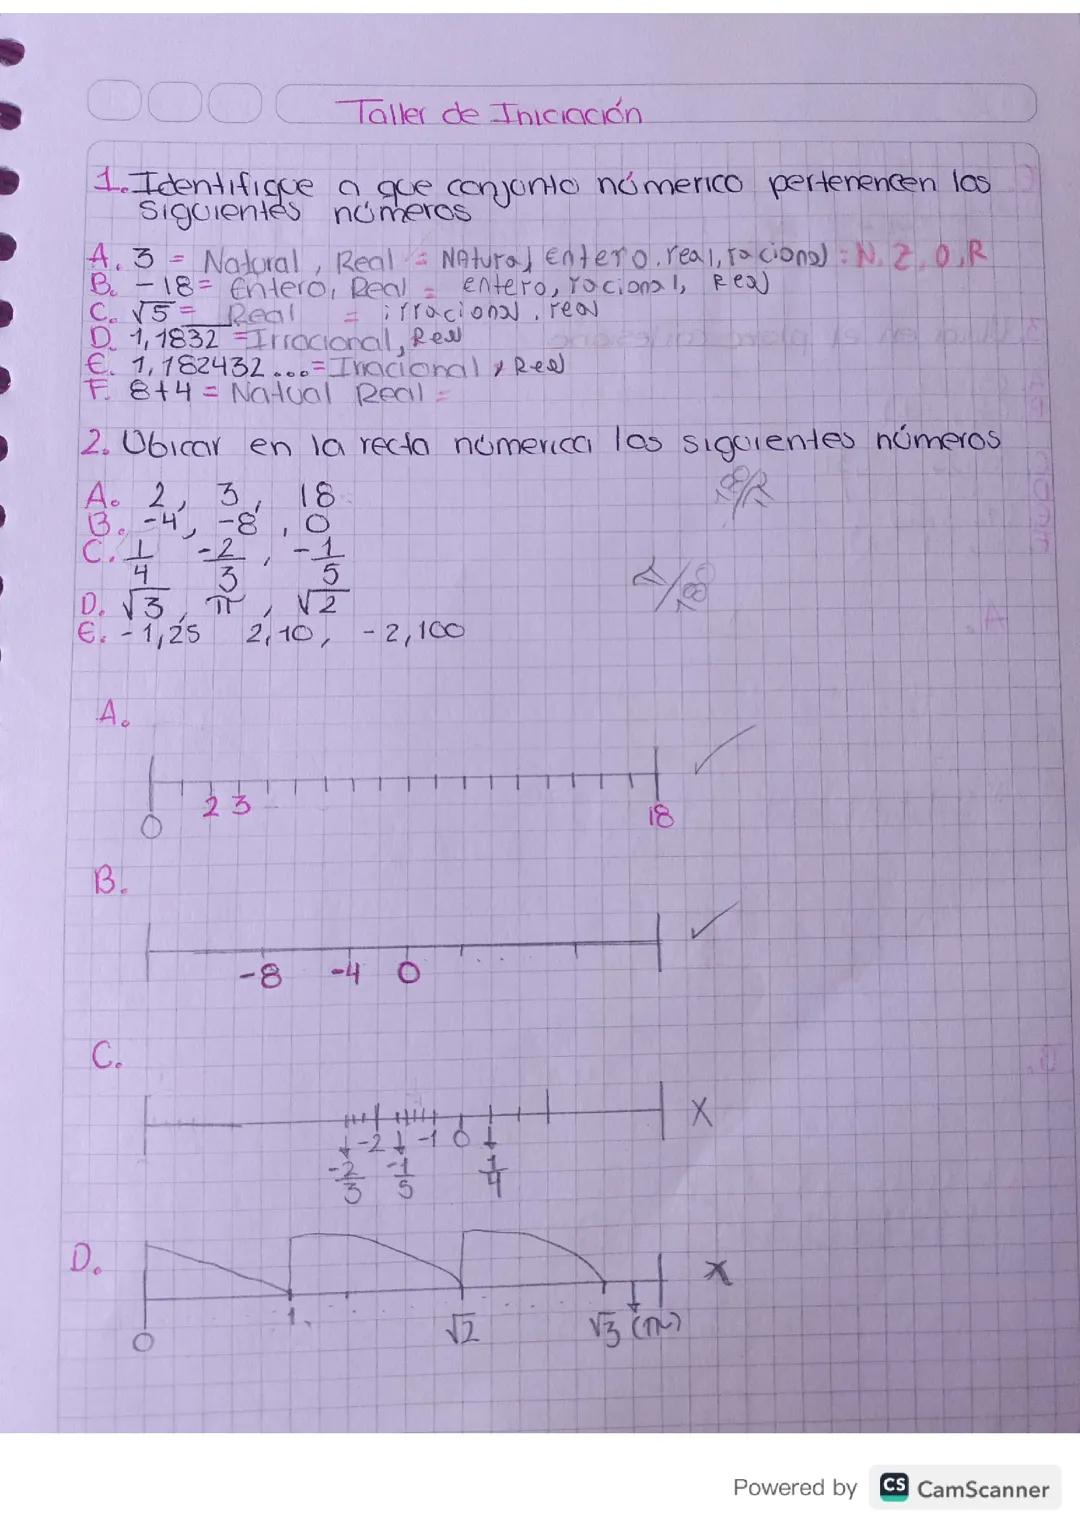 Taller de Iniciación
1. Identifique a que conjunto númerico pertenencen los
siguientes números
A. 3 = Natural, Real = NAtural, Entero, real, racional : N, Z, Q, R
B. -18 = Entero, Real = entero, racional, Real
C. √5 = Real = irracional, real
D. 1,1832 = Irracional, Real
E. 1,182432... = Irracional, Real
F. 8+4 = Natual Real =
2. Ubicar en la recta númerica los siguientes números
A. 2, 3, 18
B. -4, -8, 0
C. 1/4 -2/3, -1/5
D. √3, π, √2
E. -1,25 2,10, -2,100
A.
0 2 3 18
B.
-8 -4 0
C.
-2 -1 0 X
-2/3 -1/5 1/4
D. X
0 1 √2 √3
Powered by CS CamScanner